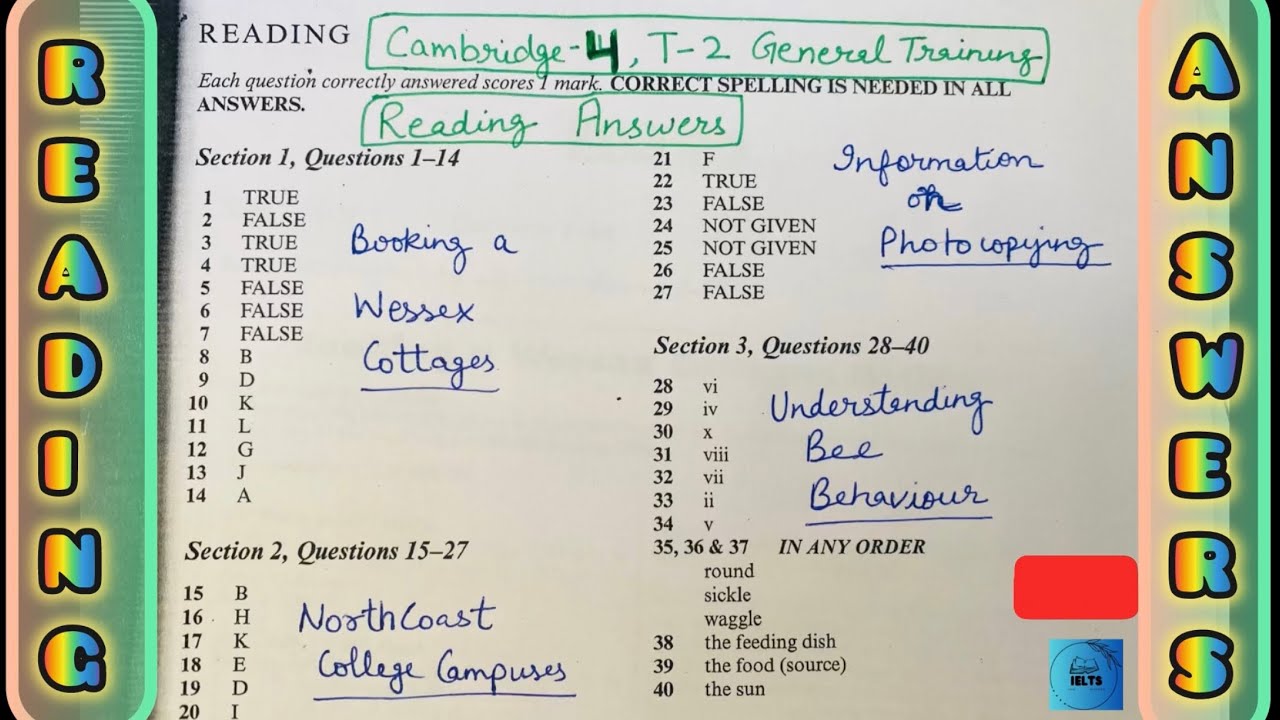 READING
ANSWERS
READING
Cambridge-4, T-2 General Training
Each question correctly answered scores 1 mark. CORRECT SPELLING IS NEEDED IN ALL
ANSWERS.
Reading Answers
Section 1, Questions 1–14
1 TRUE
2 FALSE
3 TRUE
4 TRUE
5 FALSE
6 FALSE
7 FALSE
8 B
9 D
10 K
11 L
12 G
13 J
14 A
Booking a
Wessex
Cottages
Section 2, Questions 15–27
15 B
16 H
17 K
18 E
19 D
20 I
NorthCoast
College Campuses
21 F
22 TRUE
23 FALSE
24 NOT GIVEN
25 NOT GIVEN
26 FALSE
27 FALSE
Information
on
Photocopying
Section 3, Questions 28–40
28 vi
29 iv
30 x
31 viii
32 vii
33 ii
34 v
35, 36 & 37 IN ANY ORDER
round
sickle
waggle
38 the feeding dish
39 the food (source)
40 the sun
Understanding
Bee
Behaviour
IELTS